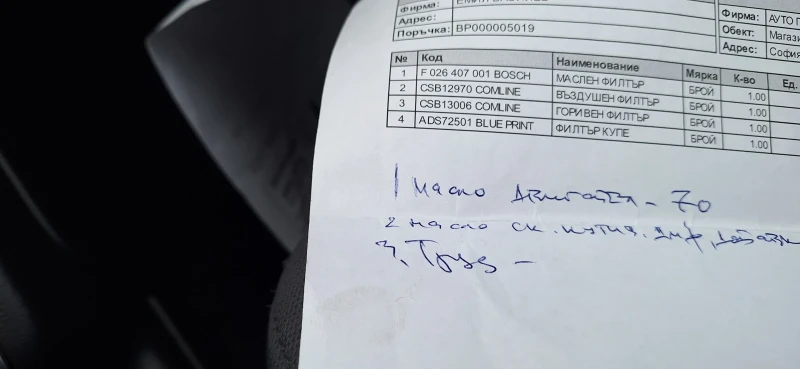 Фирма:
Адрес:
Поръчка: ВР000005019
Фирма: АУТО
Обект: Магази
Адрес: София
№ Код Наименование Мярка К-во Ед.
1 F 026 407 001 BOSCH МАСЛЕН ФИЛТЪР БРОЙ 1.00
2 CSB12970 COMLINE ВЪЗДУШЕН ФИЛТЪР БРОЙ 1.00
3 CSB13006 COMLINE ГОРИВЕН ФИЛТЪР БРОЙ 1.00
4 ADS72501 BLUE PRINT ФИЛТЪР КУПЕ БРОЙ 1.00
1 масло двигател - 70
2 масло ск. кутия. диф,
3, Труд -